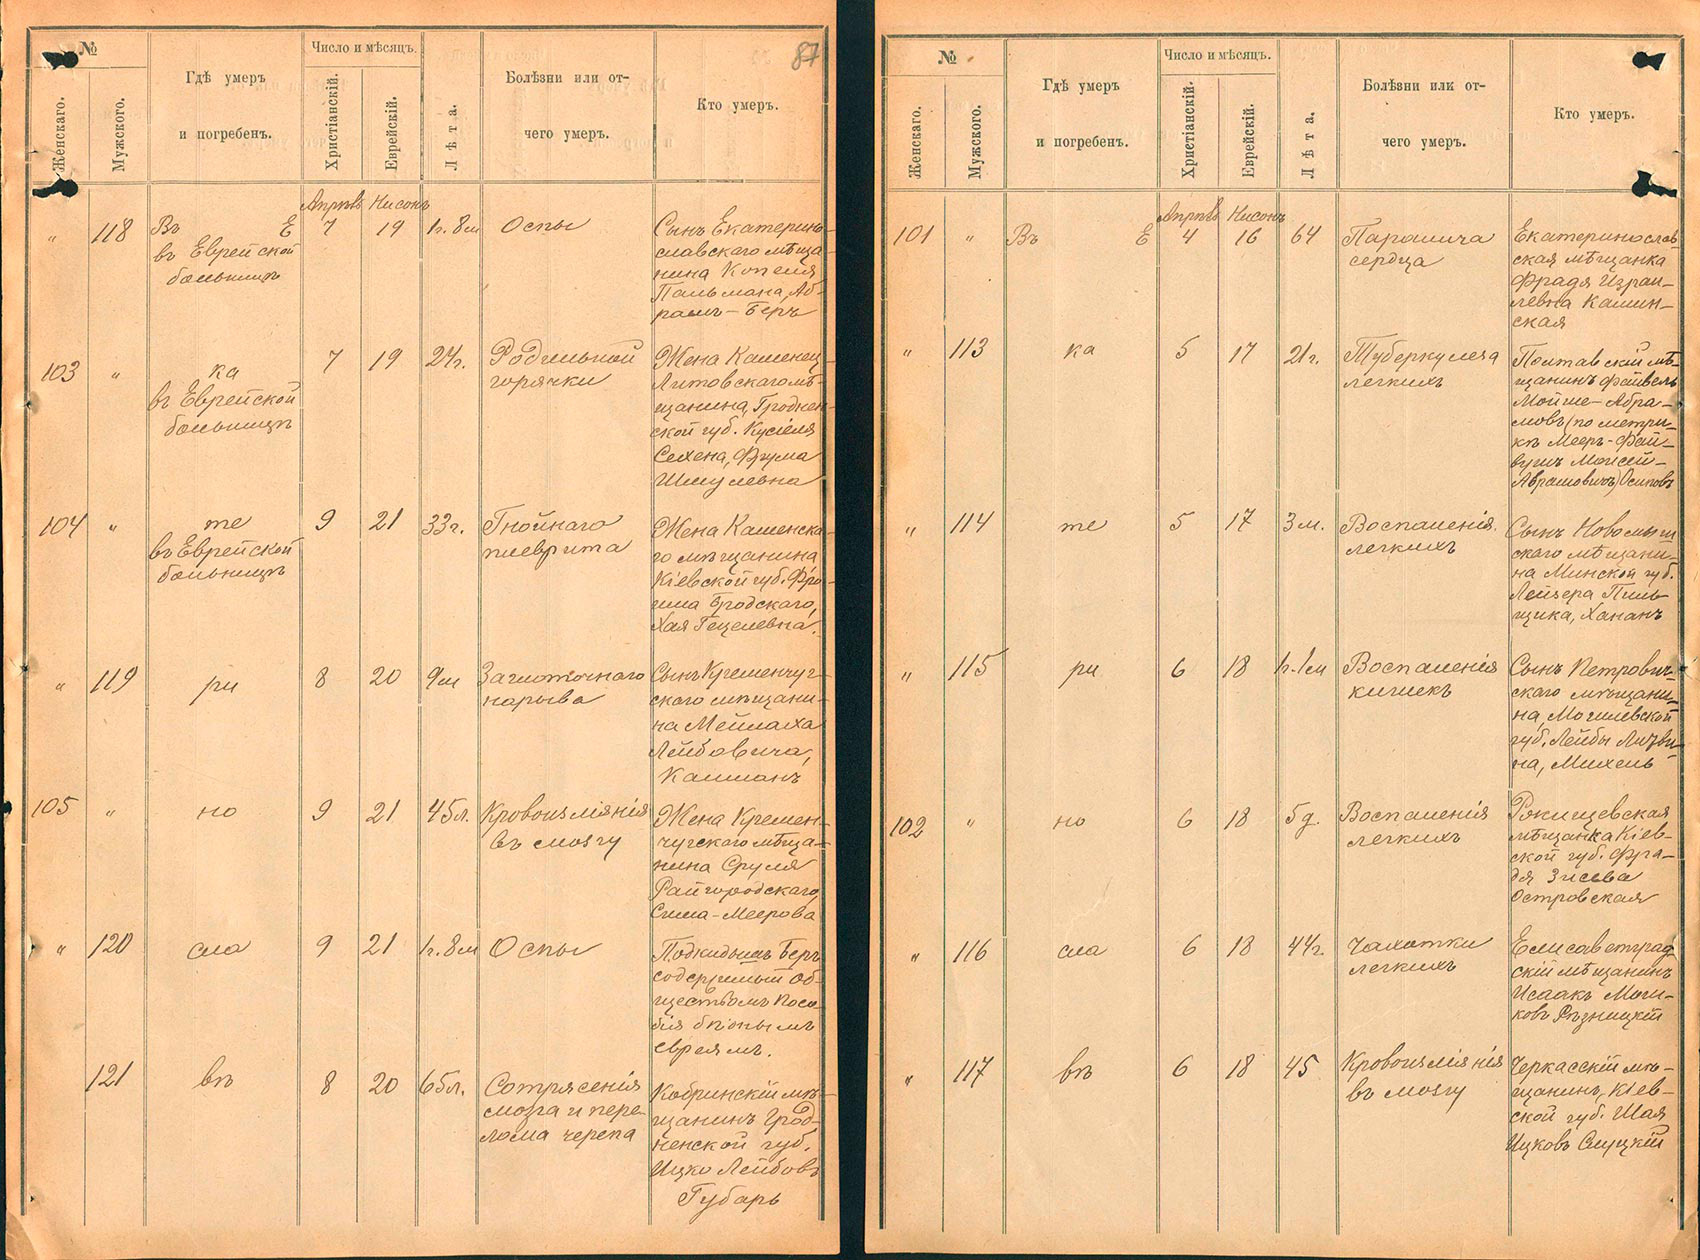 87
№
Женскаго.
Мужского.
Гдѣ умеръ
и погребенъ.
Число и мѣсяцъ.
Христіанскій.
Еврейскій.
Лѣта.
Болѣзни или от-
чего умеръ.
Кто умеръ.
Апрѣль Нисонъ
" 118
Въ Е
въ Еврейской
больницѣ
7 19 1г. 8м
Оспы
Сынъ Екатерино-
славскаго мѣща-
нина Копеля
Пальмана, Аб-
рамъ-Беръ
103 "
ка
въ Еврейской
больницѣ
7 19 24г.
Родильной
горячки
Жена Каменец-
Литовскаго мѣ-
щанина, Гроднен-
ской губ. Кусіеля
Фрума
Шмулевна
104 "
те
въ Еврейской
больницѣ
9 21 33г.
Гнойнаго
плеврита
Жена Каменска-
го мѣщанина
Кіевской губ. Фро-
има Бродскаго,
Хая Гецелевна.
" 119
ри
8 20 9м
Заглоточнаго
нарыва
Сынъ Кременчуг-
скаго мѣщани-
на Мейлаха
Лейбовича,
Калманъ
105 "
но
9 21 45л.
Кровоизліянія
въ мозгу
Жена Кремен-
чугскаго мѣща-
нина Сруля
Райгородскаго,
Сима-Меерова
" 120
сла
9 21 1г. 8м
Оспы
Подкидышъ Беръ
содержимый об-
ществомъ посо-
бія бѣднымъ
евреямъ.
121
въ
8 20 65л.
Сотрясенія
мозга и пере-
лома черепа
Кобринскій мѣ-
щанинъ Грод-
ненской губ.
Ицко Лейбовъ
Губарь
№
Женскаго.
Мужского.
Гдѣ умеръ
и погребенъ.
Число и мѣсяцъ.
Христіанскій.
Еврейскій.
Лѣта.
Болѣзни или от-
чего умеръ.
Кто умеръ.
Апрѣль Нисонъ
101 "
Въ Е
4 16 64
Паралича
сердца
Екатеринослав
ская мѣщанка
Фрадя Израи-
левна Камин-
ская
" 113
ка
5 17 21г.
Туберкулеза
легкихъ
Полтавскій мѣ-
щанинъ Файвель
Мойше-Абра-
мовъ (по метри-
кѣ Мееръ-Фай-
вишъ Мойсей-
Аврамовичъ) Осиповъ
" 114
те
5 17 3м.
Воспаленія
легкихъ
Сынъ
скаго мѣщани-
на Минской губ.
Лейзера Пиль-
щика, Хананъ
" 115
ри
6 18 1г. 1м
Воспаленія
кишекъ
Сынъ Петрович-
скаго мѣщани-
на, Могилевской
губ. Лейбы Литви-
на, Михель
102 "
но
6 18 5д.
Воспаленія
легкихъ
мѣщанка Кіев-
ской губ. Фра-
дя Зисева
Островская
" 116
сла
6 18 44г.
Чахотки
легкихъ
Елисаветград-
скій мѣщанинъ
Исаакъ Мош-
ковъ Рѣзницкій
" 117
въ
6 18 45
Кровоизліянія
въ мозгу
Черкасскій мѣ-
щанинъ, Кіев-
ской губ. Шая
Ицковъ Слуцкій